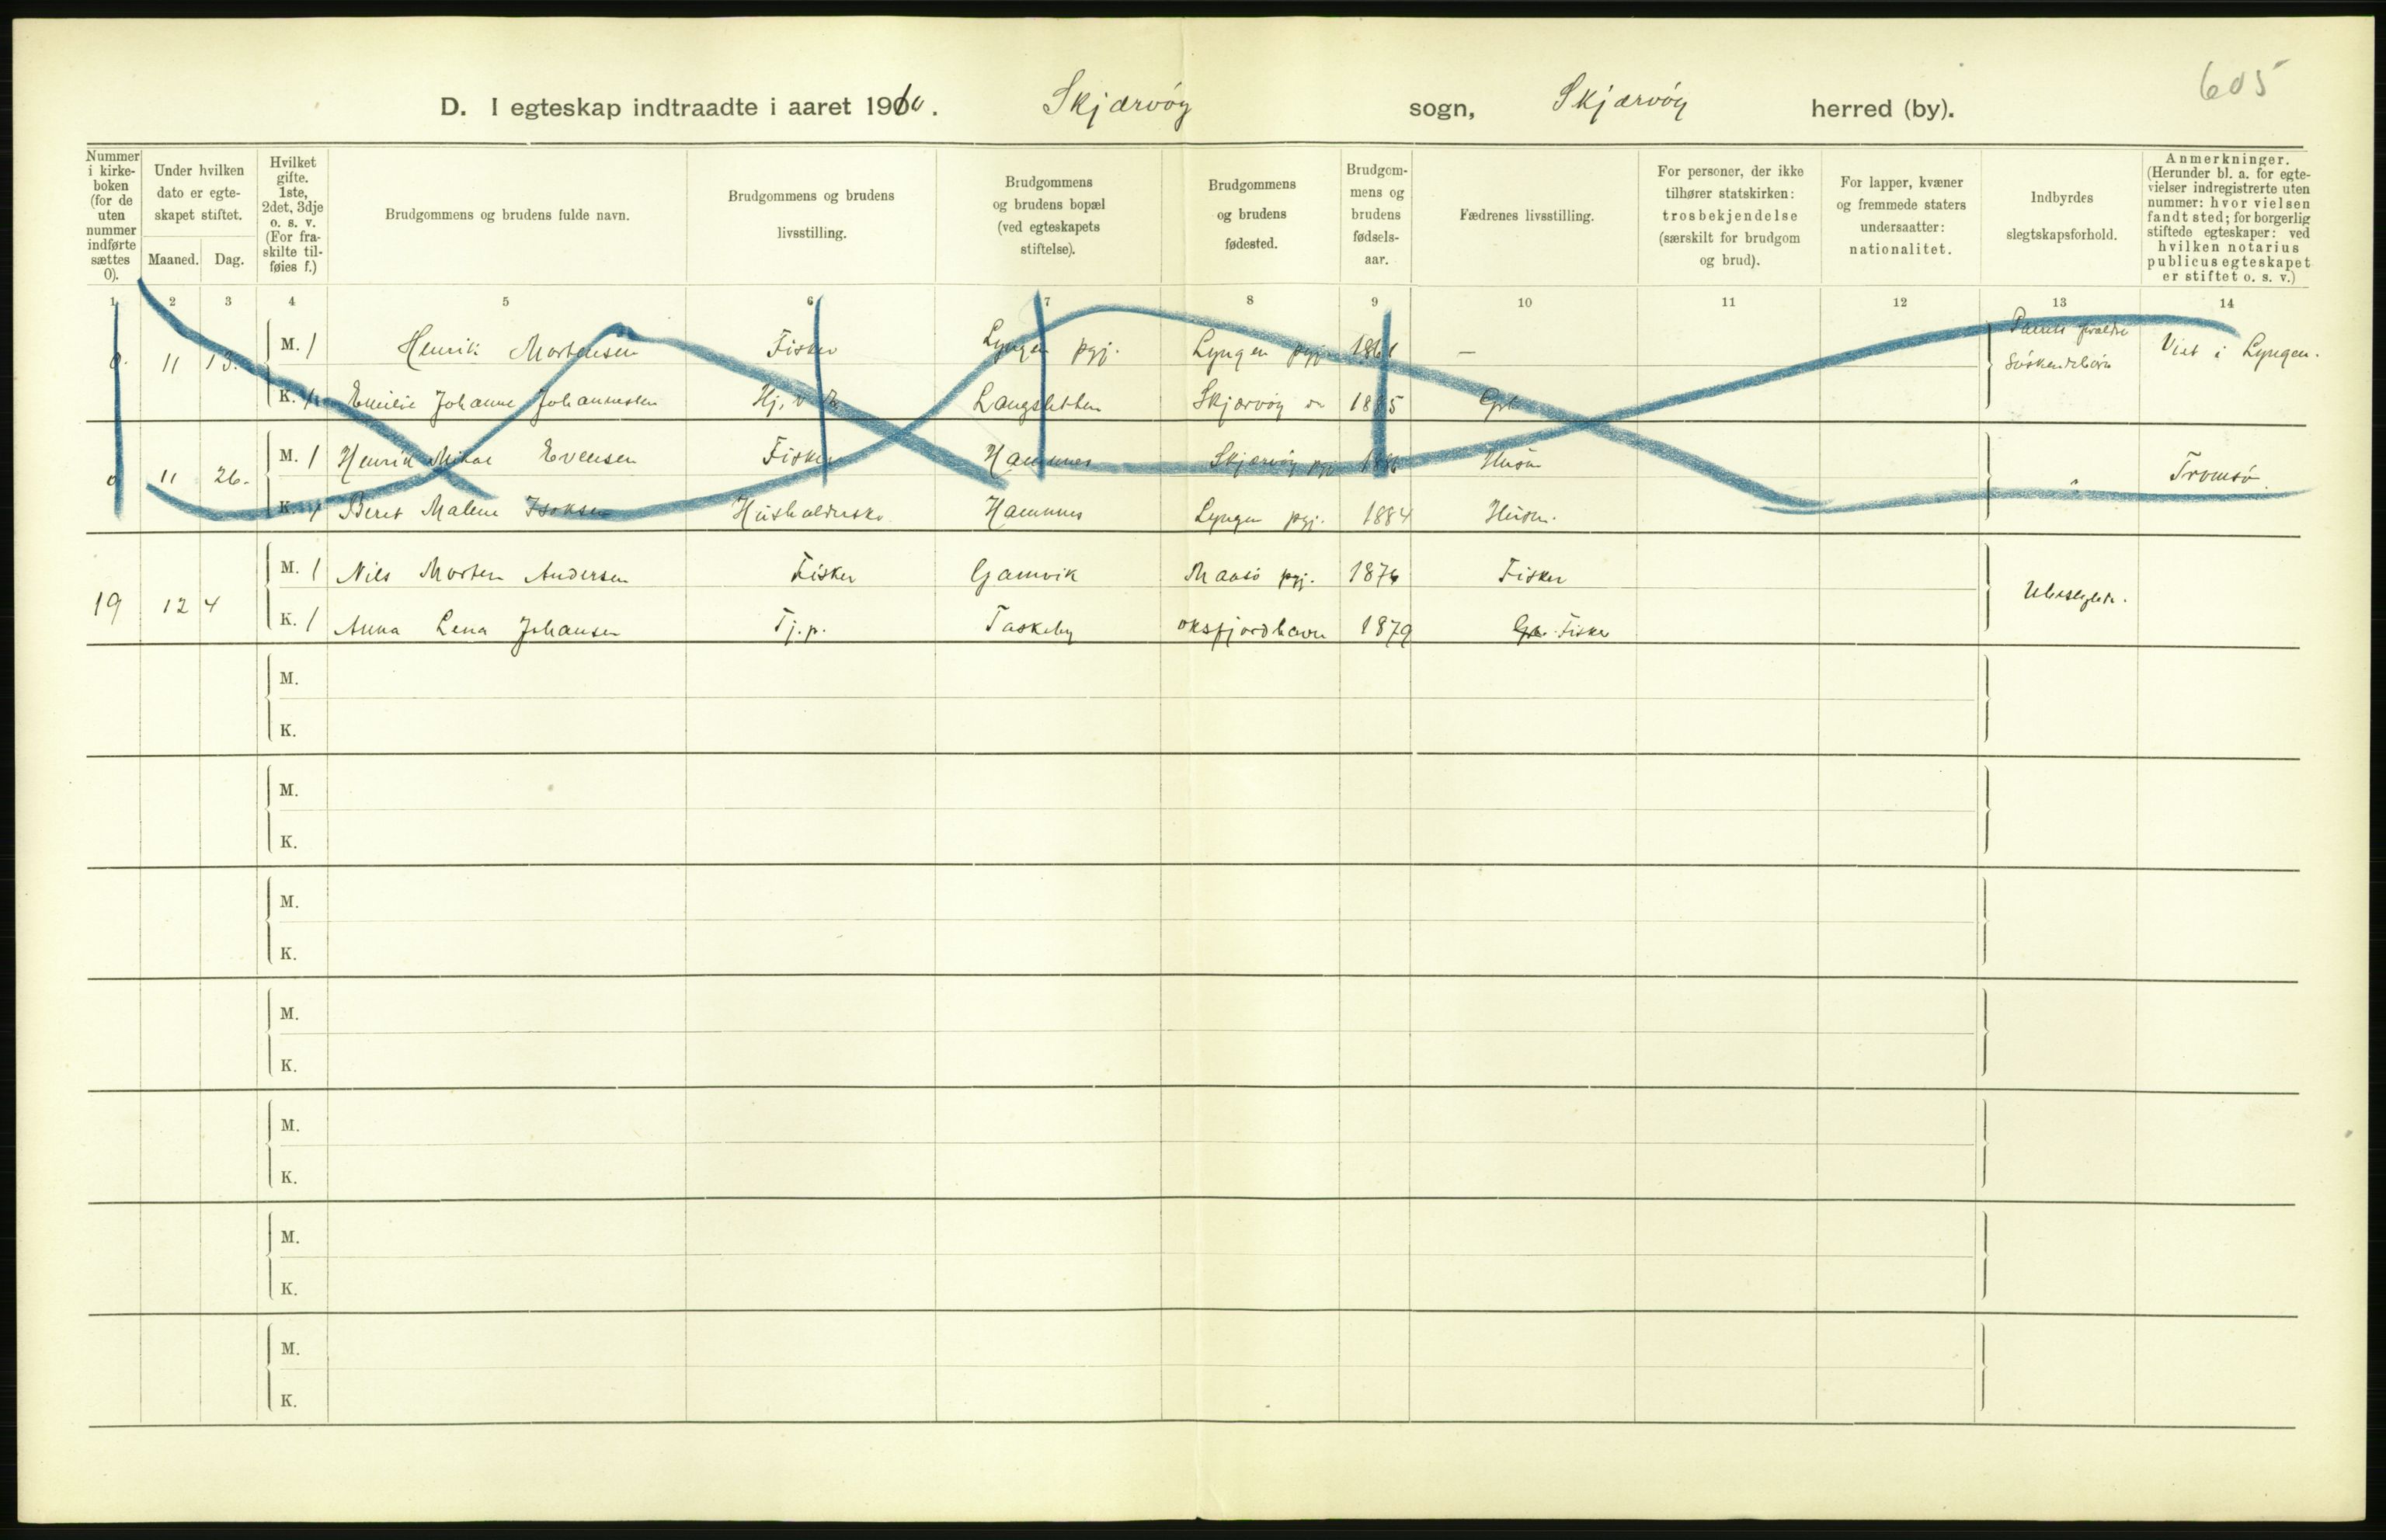 605
D. I egteskap indtraadte i aaret 1910. Skjærvöy sogn, Skjærvöy herred (by).
Nummer i kirke-boken (for de uten nummer indførte sættes 0).
Under hvilken dato er egte-skapet stiftet.
Maaned. Dag.
Hvilket gifte. 1ste, 2det, 3dje o. s. v. (For fra-skilte til-føies f.)
Brudgommens og brudens fulde navn.
Brudgommens og brudens livsstilling.
Brudgommens og brudens bopæl (ved egteskapets stiftelse).
Brudgommens og brudens fødested.
Brudgom-mens og brudens fødsels-aar.
Fædrenes livsstilling.
For personer, der ikke tilhører statskirken: trosbekjendelse (særskilt for brudgom og brud).
For lapper, kvæner og fremmede staters undersaatter: nationalitet.
Indbyrdes slegtskapsforhold.
Anmerkninger. (Herunder bl. a. for egte-vielser indregistrerte uten nummer: hvor vielsen fandt sted; for borgerlig stiftede egteskaper: ved hvilken notarius publicus egteskapet er stiftet o. s. v.)
1 2 3 4 5 6 7 8 9 10 11 12 13 14
0. 11 13. M. 1 Henrik Mortensen Fisker Lyngen pgj. Lyngen pgj. 1861 — Søskendebørn Viet i Lyngen.
K. 1 Emilie Johanne Johannesen Langsletten Skjærvöy 1885
0 11 26. M. 1 Henrik Mikal Evensen Fisker Hamnes Skjærvöy pgj. 1886 Husm " Tromsö.
K. 1 Beret Malene Isaksen Husholderske Hamnes Lyngen pgj. 1884 Husm.
19 12 4 M. 1 Nils Morten Andersen Fisker Gamvik Maasö pgj. 1876 Fisker Ubeslegtet.
K. 1 Anna Lena Johansen Tj.p. Taskeby oksfjordhavn 1879 Fisker
M.
K.
M.
K.
M.
K.
M.
K.
M.
K.
M.
K.
M.
K.